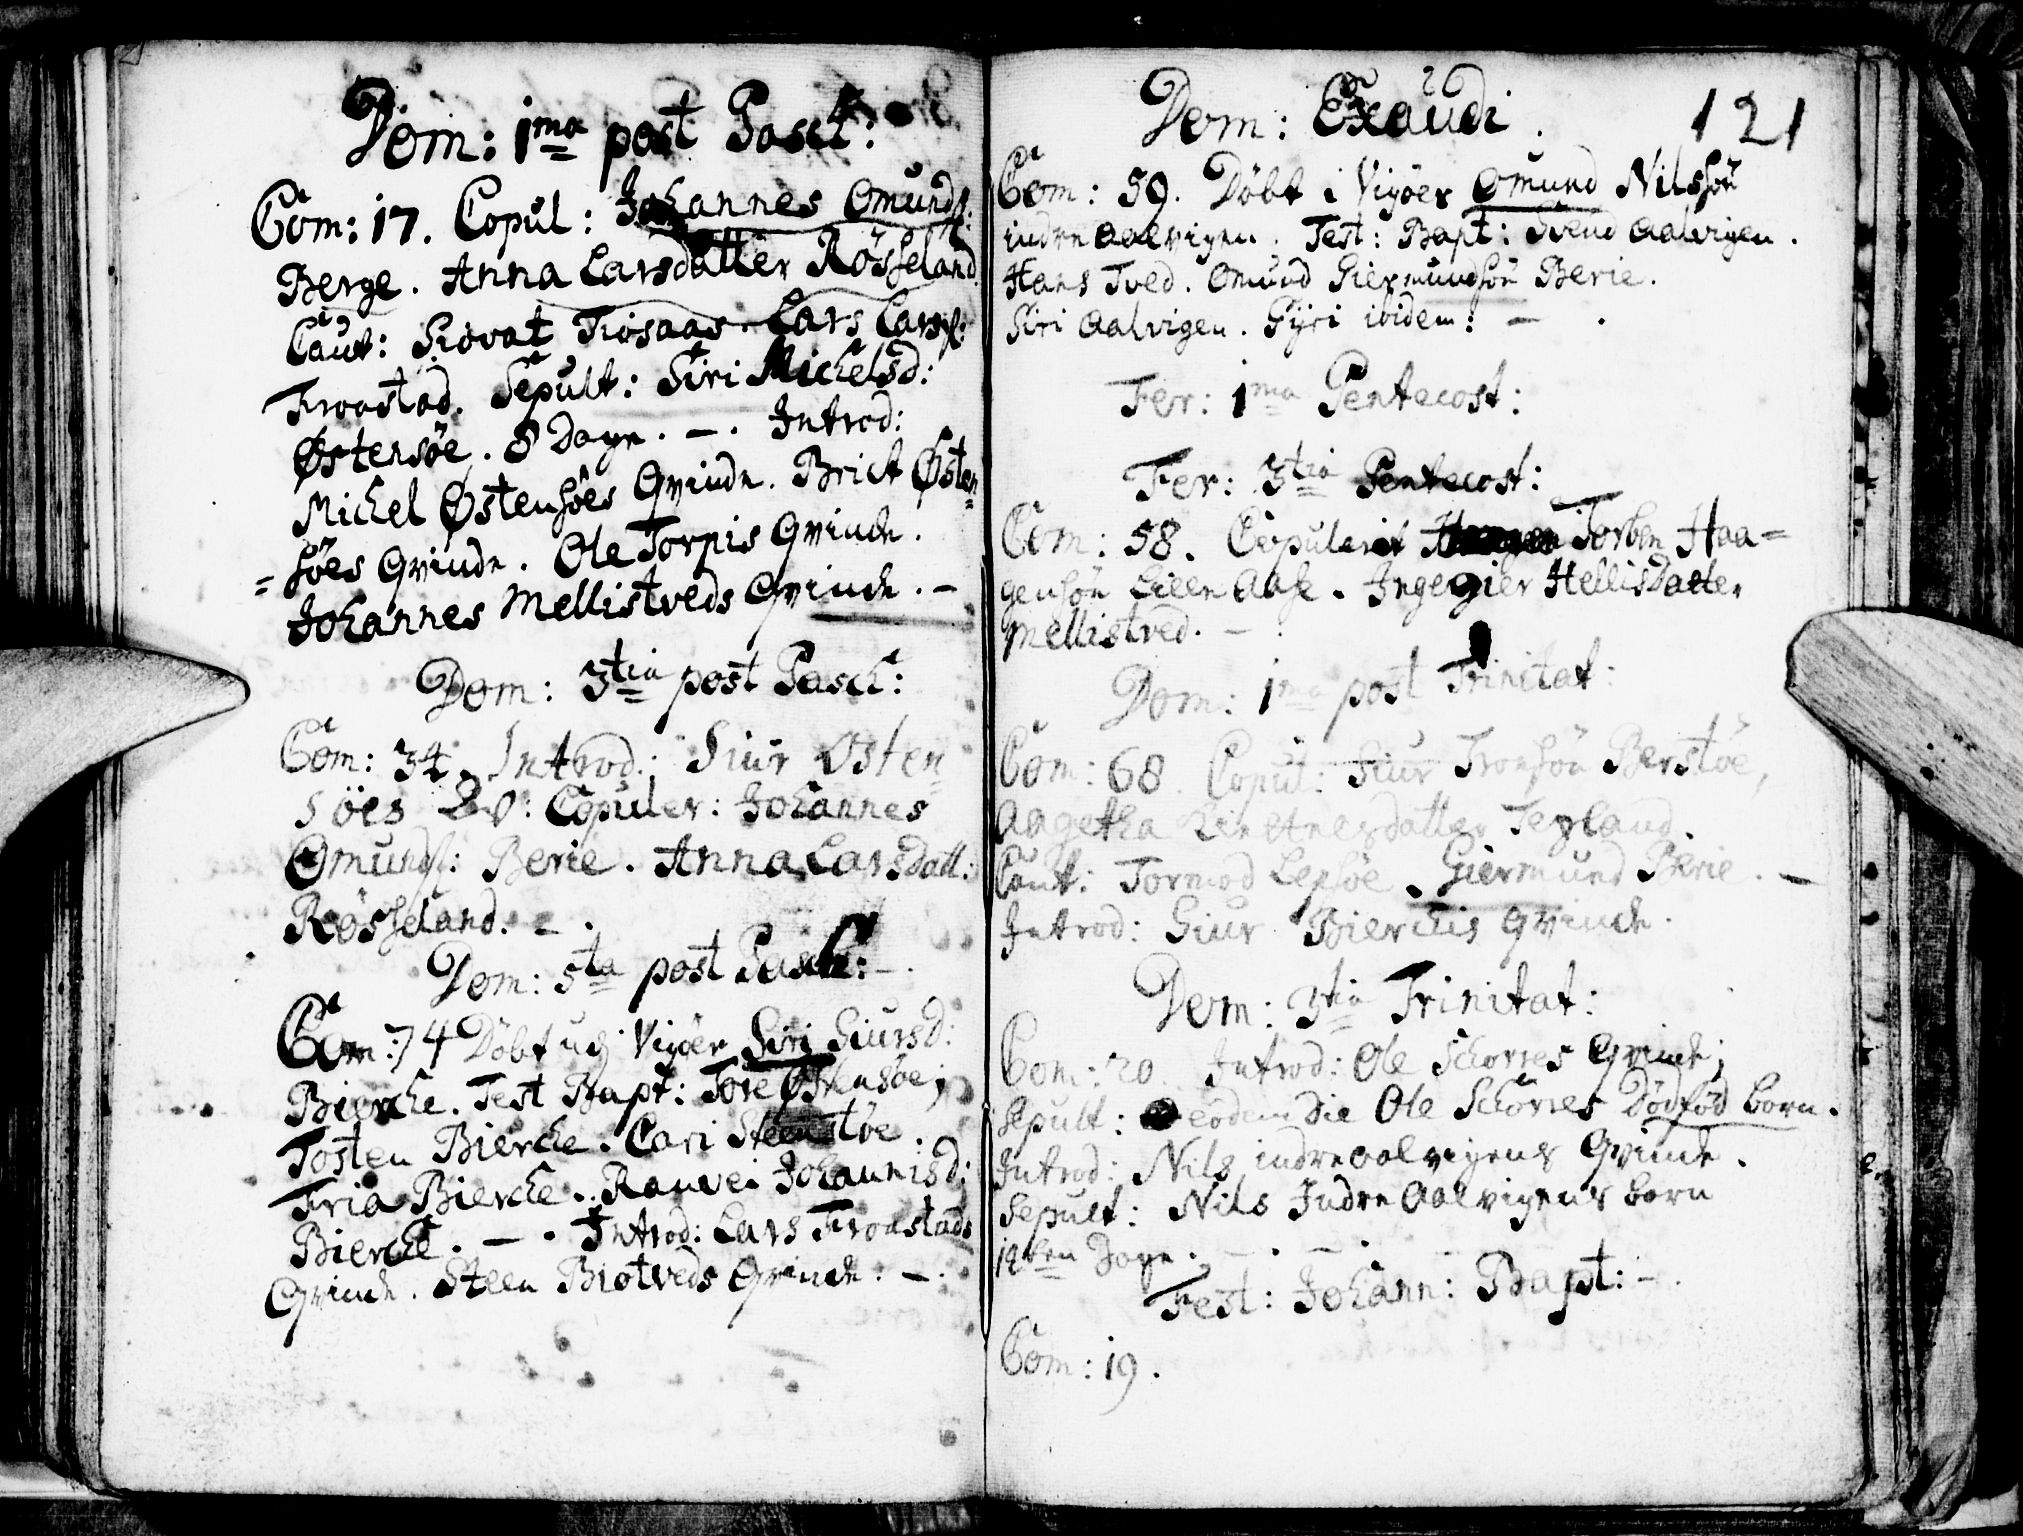 Dom: 1ma post Pasch:
Com: 17. Copul: Johannes Omunds:
Berge. Anna Larsdatter Rösseland.
Caut: Siovat Tiosaas. Lars Larss:
Froastad. Sepult: Siri Michelsd:
Østensöe. 8 Dage. -. Introd:
Michel Østensöes Qvinde. Brict Østen=
=söes Qvinde. Ole Torpis Qvinde.
Johannes Mellistveds Qvinde. -
Dom: 3tia post Pasch:
Com: 34. Introd: Siur Østen
söes Qv: Copuler: Johannes
Omunds: Berie. Anna Larsdatt:
Rösseland. -.
Dom: 5ta post Pasch: -.
Com: 74 Döbt udj Vigöer Siri Siursd:
Bierche. Test Bapt: Tore Østensöe;
Tosten Bierche. Cari Steenstöe.
Fria Bierche. Ranvei Johannisd:
Bierche. -. Introd: Lars Froastads
Qvinde. Steen Biotveds Qvinde. -.
121
Dom: Exaudi.
Com: 59. Döbt i Vigöer Omund Nilssön
indre Aalvigen. Test: Bapt: Svend Aalvigen.
Hans Tved. Omund Giermundsön Berie.
Siri Aalvigen. Gyri ibidem: -.
Fer: 1ma Pentecost:
Fer: 3tia Pentecost:
Com: 58. Copulerit Torben Haa=
gensön Aase. Ingegier Hellisdatter
Mellistved. -
Dom: 1ma post Trinitat:
Com: 68. Copul: Siur Tronsön Berstöe,
Aagetha datter Teyland.
Caut: Tormod Lepsöe. Giermund Berie. -
Introd: Siur Bierchis Qvinde.
Dom: 3tia Trinitat:
Com: 20. Introd: Ole Schorres Qvinde;
Sepult: eodem die Ole Schorres Dödfød born.
Introd: Nils indre Aalvigens Qvinde.
Sepult: Nils Indre Aalvigens born
Dage. -. -.
Fest: Johann: Bapt: -.
Com: 19.